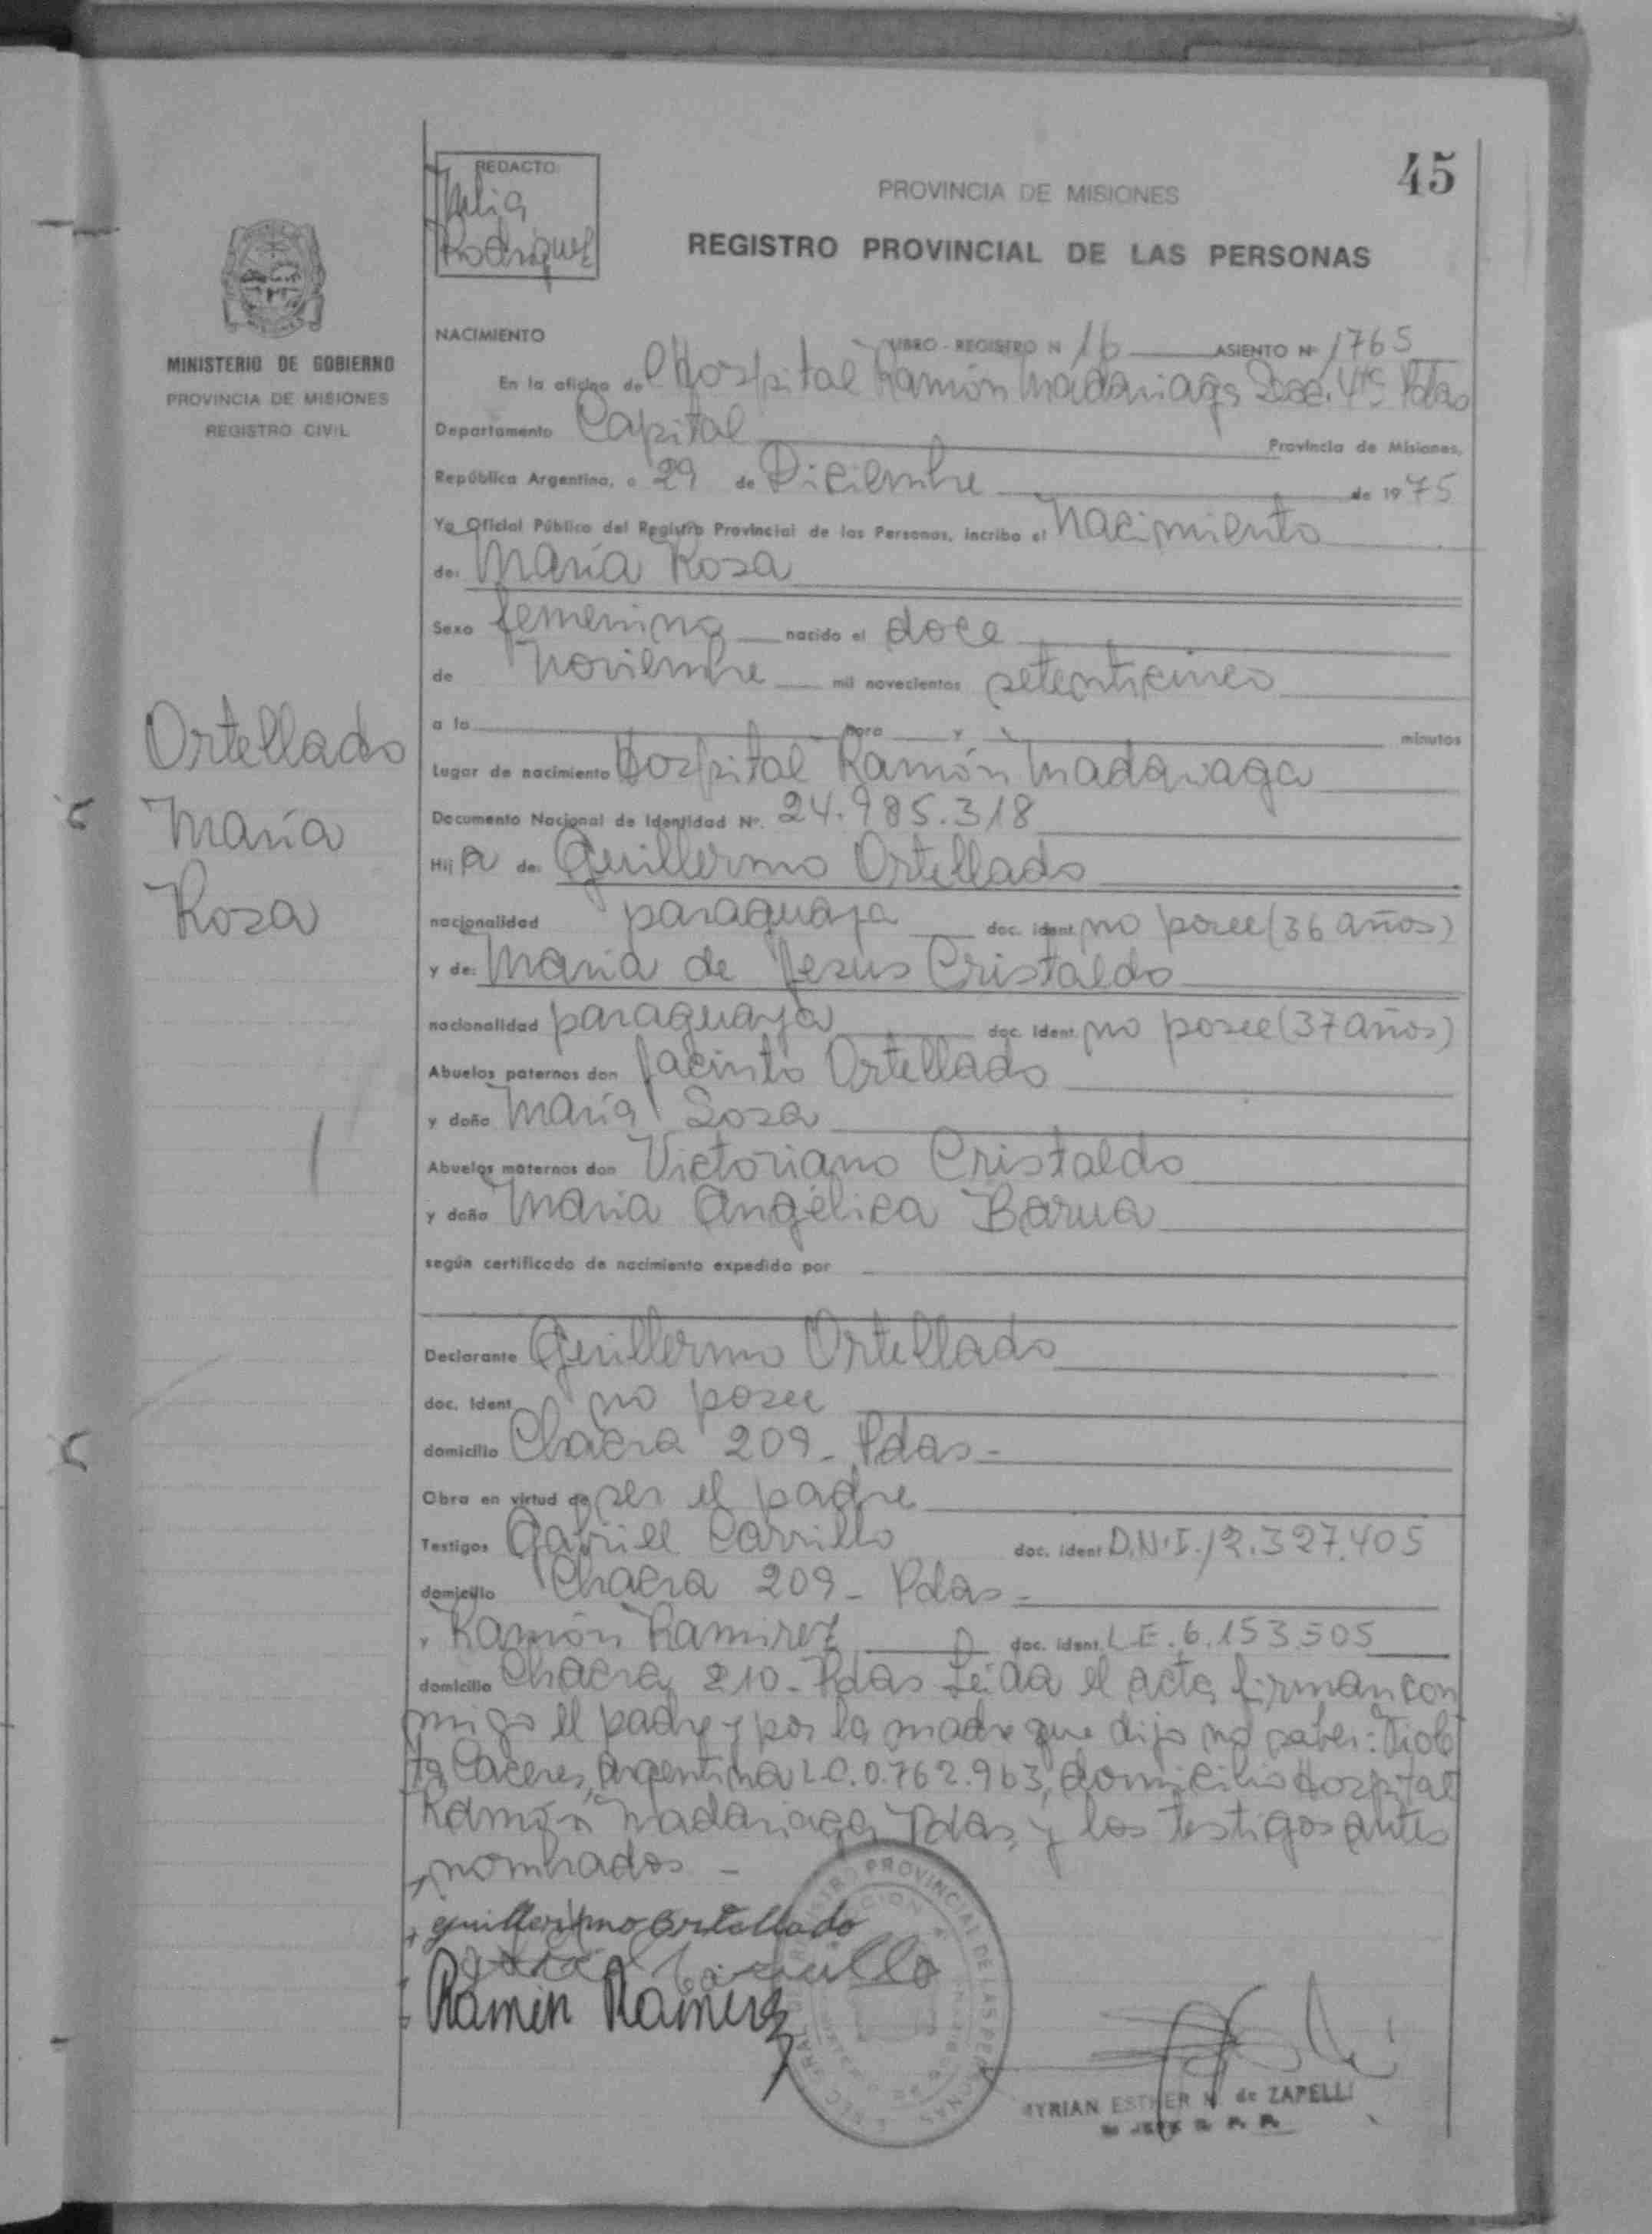 45
REDACTO:
Julia
Rodriguez
PROVINCIA DE MISIONES
REGISTRO PROVINCIAL DE LAS PERSONAS
MINISTERIO DE GOBIERNO
PROVINCIA DE MISIONES
REGISTRO CIVIL
Ortellado
María
Rosa
NACIMIENTO
LIBRO - REGISTRO N 16 ASIENTO Nº 1765
En la oficina de Hospital Ramón Madariaga Secc. 4ta Pdas
Departamento Capital Provincia de Misiones,
República Argentina, a 29 de Diciembre de 1975
Yo Oficial Público del Registro Provincial de las Personas, incribo el Nacimiento
de: María Rosa
Sexo femenino nacido el doce
de Noviembre mil novecientos setenticinco
a la hora y minutos
Lugar de nacimiento Hospital Ramón Madariaga
Documento Nacional de Identidad Nº. 24.985.318
Hij a de: Guillermo Ortellado
nacionalidad paraguaya doc. ident. no posee (36 años)
y de: María de Jesus Cristaldo
nacionalidad paraguaya doc. ident. no posee (37 años)
Abuelos paternos don Jacinto Ortellado
y doña María Sosa
Abuelos maternos don Victoriano Cristaldo
y doña María Angélica Barua
según certificado de nacimiento expedido por
Declarante Guillermo Ortellado
doc. Ident. no posee
domicilio Chacra 209 - Pdas -
Obra en virtud de ser el padre
Testigos Gabriel Carrillo doc. ident D.N.I. 12.327.405
domicilio Chacra 209 - Pdas -
y Ramón Ramirez doc. ident. L.E. 6.153.505
domicilio Chacra 210 - Pdas Leida el acta firman con
migo el padre y por la madre que dijo no saber: Viole
ta Caceres, Argentina L.C. 0.762.963, domicilio Hospital
Ramón Madariaga Pdas, y los testigos antes
nombrados -
guillermo ortellado
Carrillo
Ramon Ramirez
REGISTRO PROVINCIAL DE LAS PERSONAS
MYRIAN ESTHER de ZAPELLI